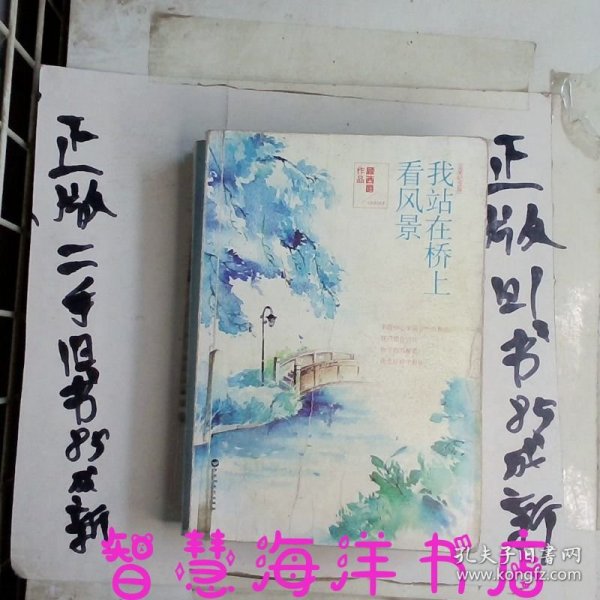 正版二手旧书85成新
我站在桥上
看风景
顾西爵
作品
正版旧书85成新
智慧海洋书店
孔夫子旧书网
www.kongfz.com